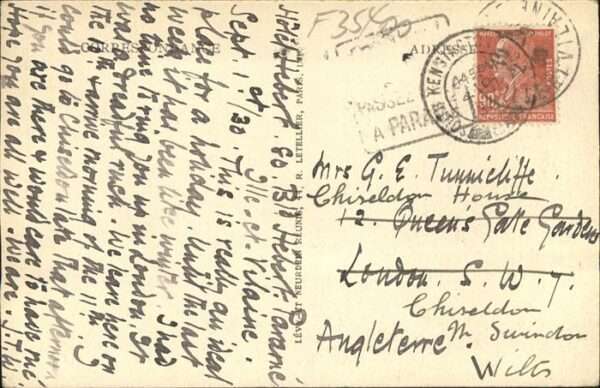 CORRESPONDANCE
Hotel Albert 60, Bd Albert. Paramé
Ille-et-Vilaine.
Sept. 1st/30. This is really an ideal
place for a holiday. Until the last
week it has been like winter. I had
no time to ring you up in London. It
was a dreadful rush. We leave here on
the 10th &amp; arrive morning of the 11th. I
could go to Chiseldon late that afternoon,
if you are there &amp; would care to have me.
Hope you are all well. We are.
LÉVY ET NEURDEIN RÉUNIS, 44, R. LETELLIER, PARIS
F3540
ADRESSE
PASSEZ
LA PARA
KENSINGTON
90
RÉPUBLIQUE FRANÇAISE
POSTES
Mrs G. E. Tunnicliffe.
Chiseldon House
12. Queens Gate Gardens
London. S. W. 7.
Chiseldon
Angleterre. Nr Swindon
Wilts